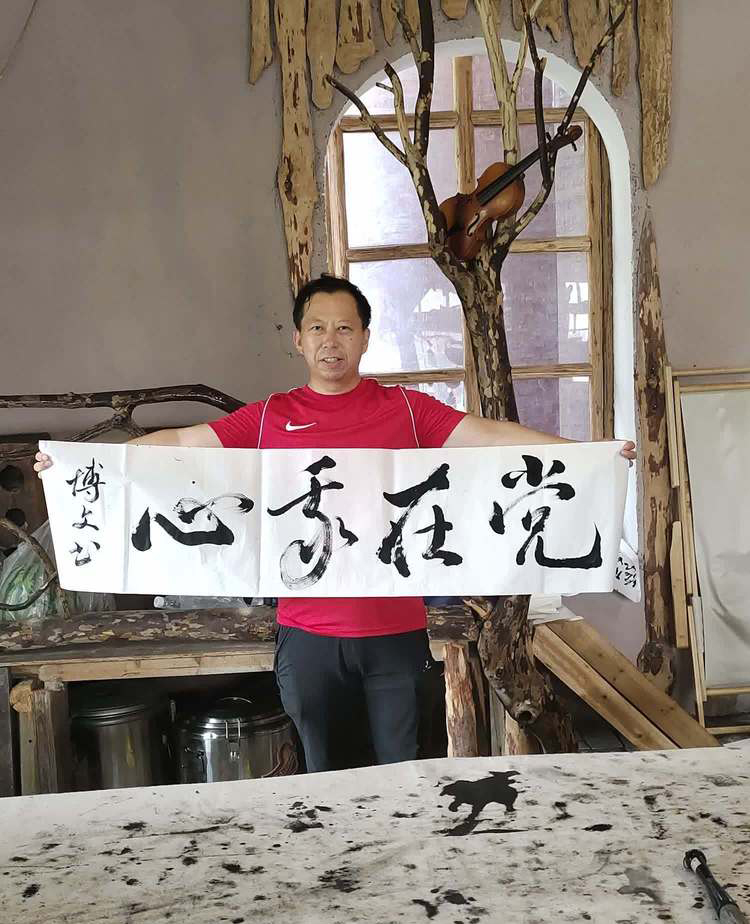 党在我心
博文书